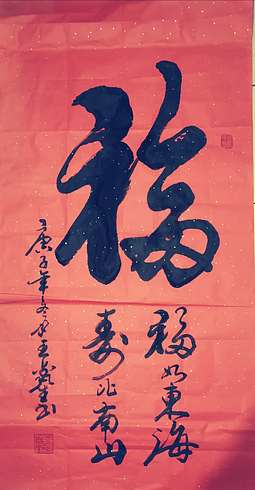 福
福如東海
壽比南山
庚子年冬月王